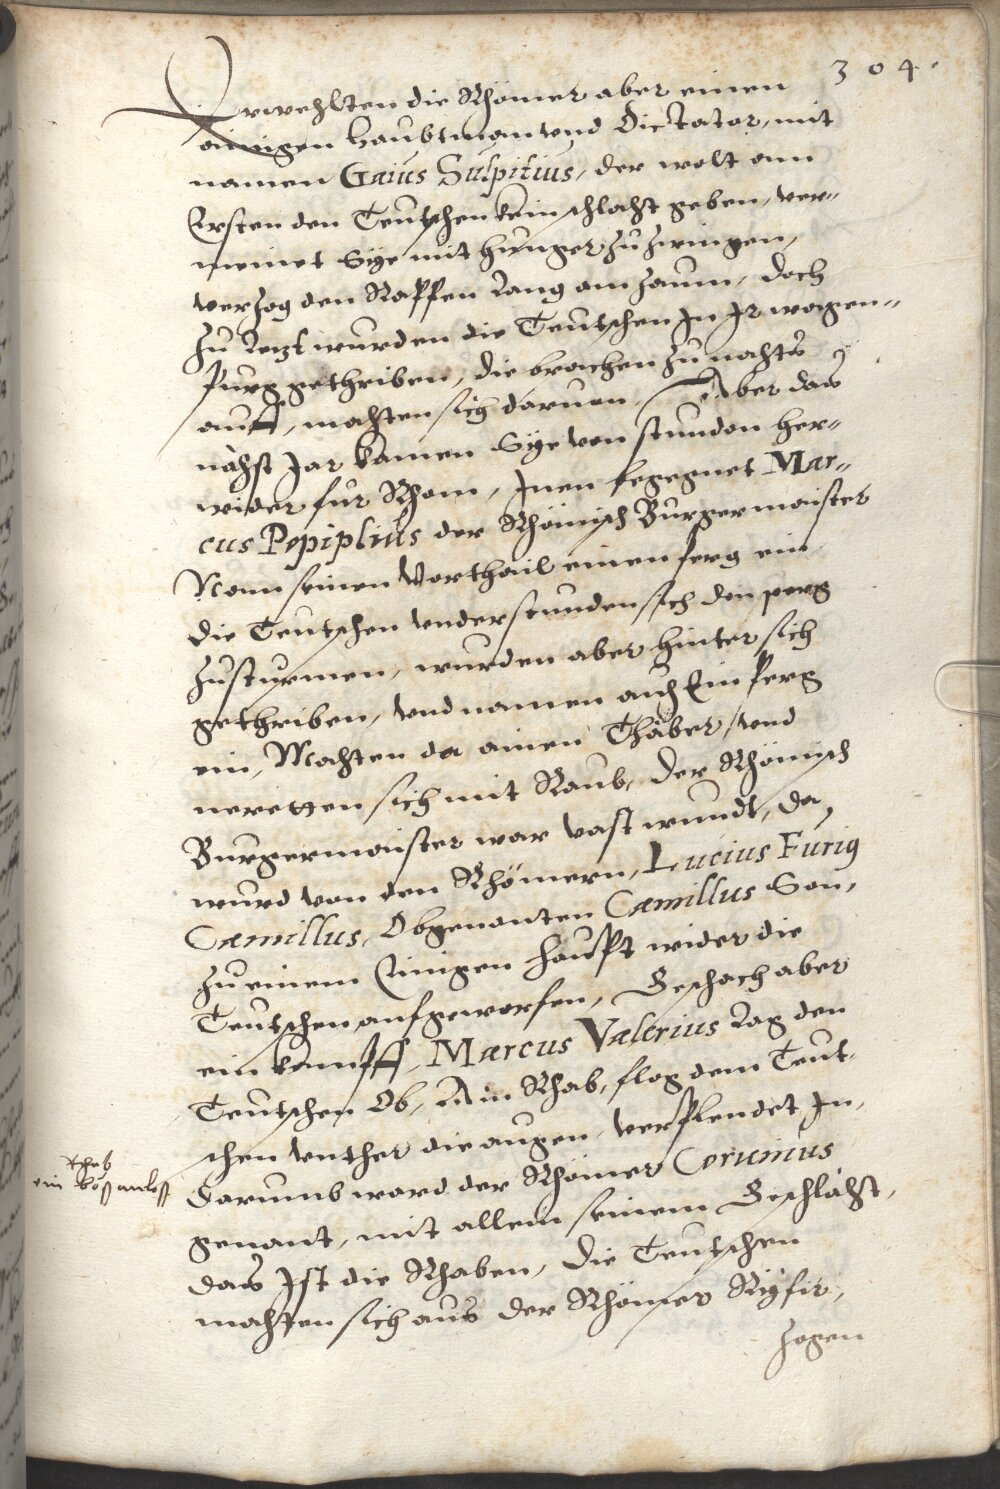 304.
Erwehlten die Rhömer aber einen
ainigen haubtman vnd Dictator, mit
namen Gaius Sulpitius, der wolt am
Ersten den Teutschen kein schlacht geben, ver-
meinet Sye mit hunger zu zwingen,
verzog den Raffen lang am zaum, doch
zu letzt wurden die Teutschen In Ir wagen-
purg gethriben, die brachen zu nachts
auff, machten sich daruan. Aber das
nähst Jar kamen Sye von stundan her-
wider fur Rhom, Inen begegnet Mar-
cus Popiplius der Rhömisch Burgermaister
Nam seinen Vorthail einen perg ein
die Teutschen vnderstunden sich den perg
zusturmen, wurden aber hinter sich
gethriben, vnd namen auch Ein perg
ein, Machten da ainen Thäber, vnd
neretten sich mit Raub, der Rhömisch
Burgermaister war vast wundt, da
wurd von den Rhömern, Lucius Furig
Camillus, Obgenanten Camillus Son,
zu einem Einigen haupt wider die
Teutschen aufgeworfen, Geschach aber
ein kampff, Marcus Valerius lag den
Teutschen Ob, Ain Rhab, flog dem Teut-
schen vnther die augen, verplendet In,
darumb ward der Rhömer Coruinus
genant, mit allem seinem Geschlächt,
das Ist die Rhaben, die Teutschen
machten sich aus der Rhömer
zogen
ein